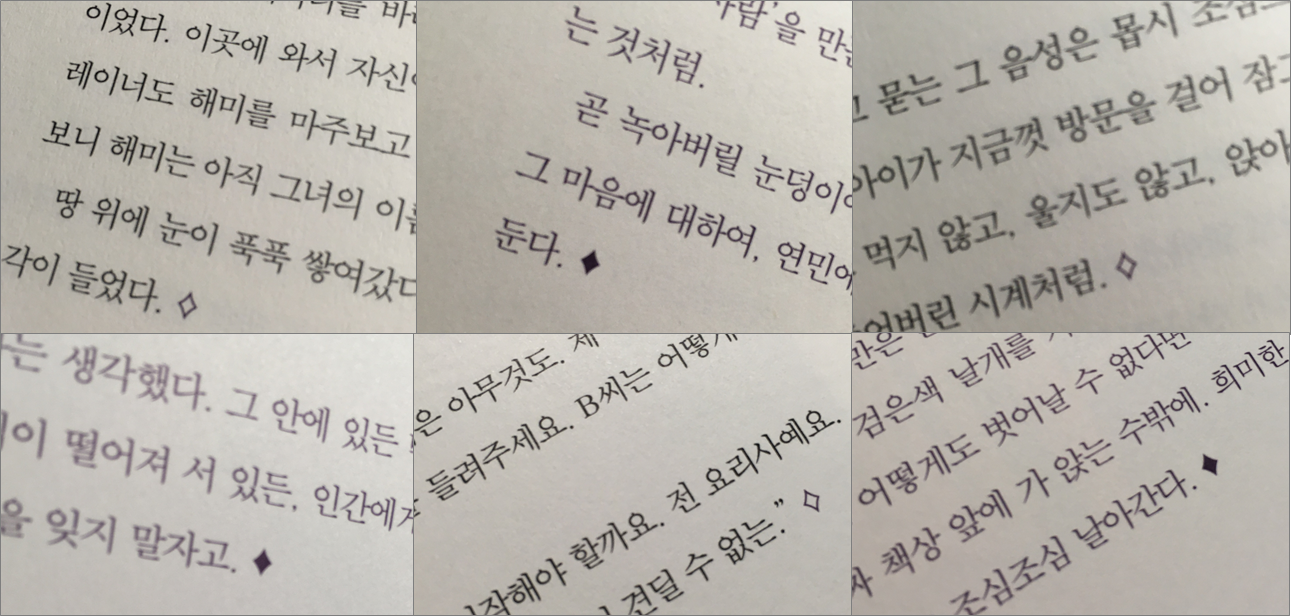 바
이었다. 이곳에 와서 자신
레이너도 해미를 마주보고
보니 해미는 아직 그녀의 이름
땅 위에 눈이 푹푹 쌓여갔다
각이 들었다. ◇
사람’을 만
는 것처럼.
곧 녹아버릴 눈덩이
그 마음에 대하여, 연민에
둔다. ◆
고 묻는 그 음성은 몹시 조심
아이가 지금껏 방문을 걸어 잠그
먹지 않고, 울지도 않고, 앉아
버린 시계처럼. ◇
는 생각했다. 그 안에 있든
이 떨어져 서 있든, 인간에게
을 잊지 말자고. ◆
은 아무것도. 제
들려주세요. B씨는 어떻게
전 요리사예요.
작해야 할까요.
견딜 수 없는.” ◇
만은
검은색 날개를
어떻게도 벗어날 수 없다면
책상 앞에 가 앉는 수밖에. 희미한
조심조심 날아간다. ◆